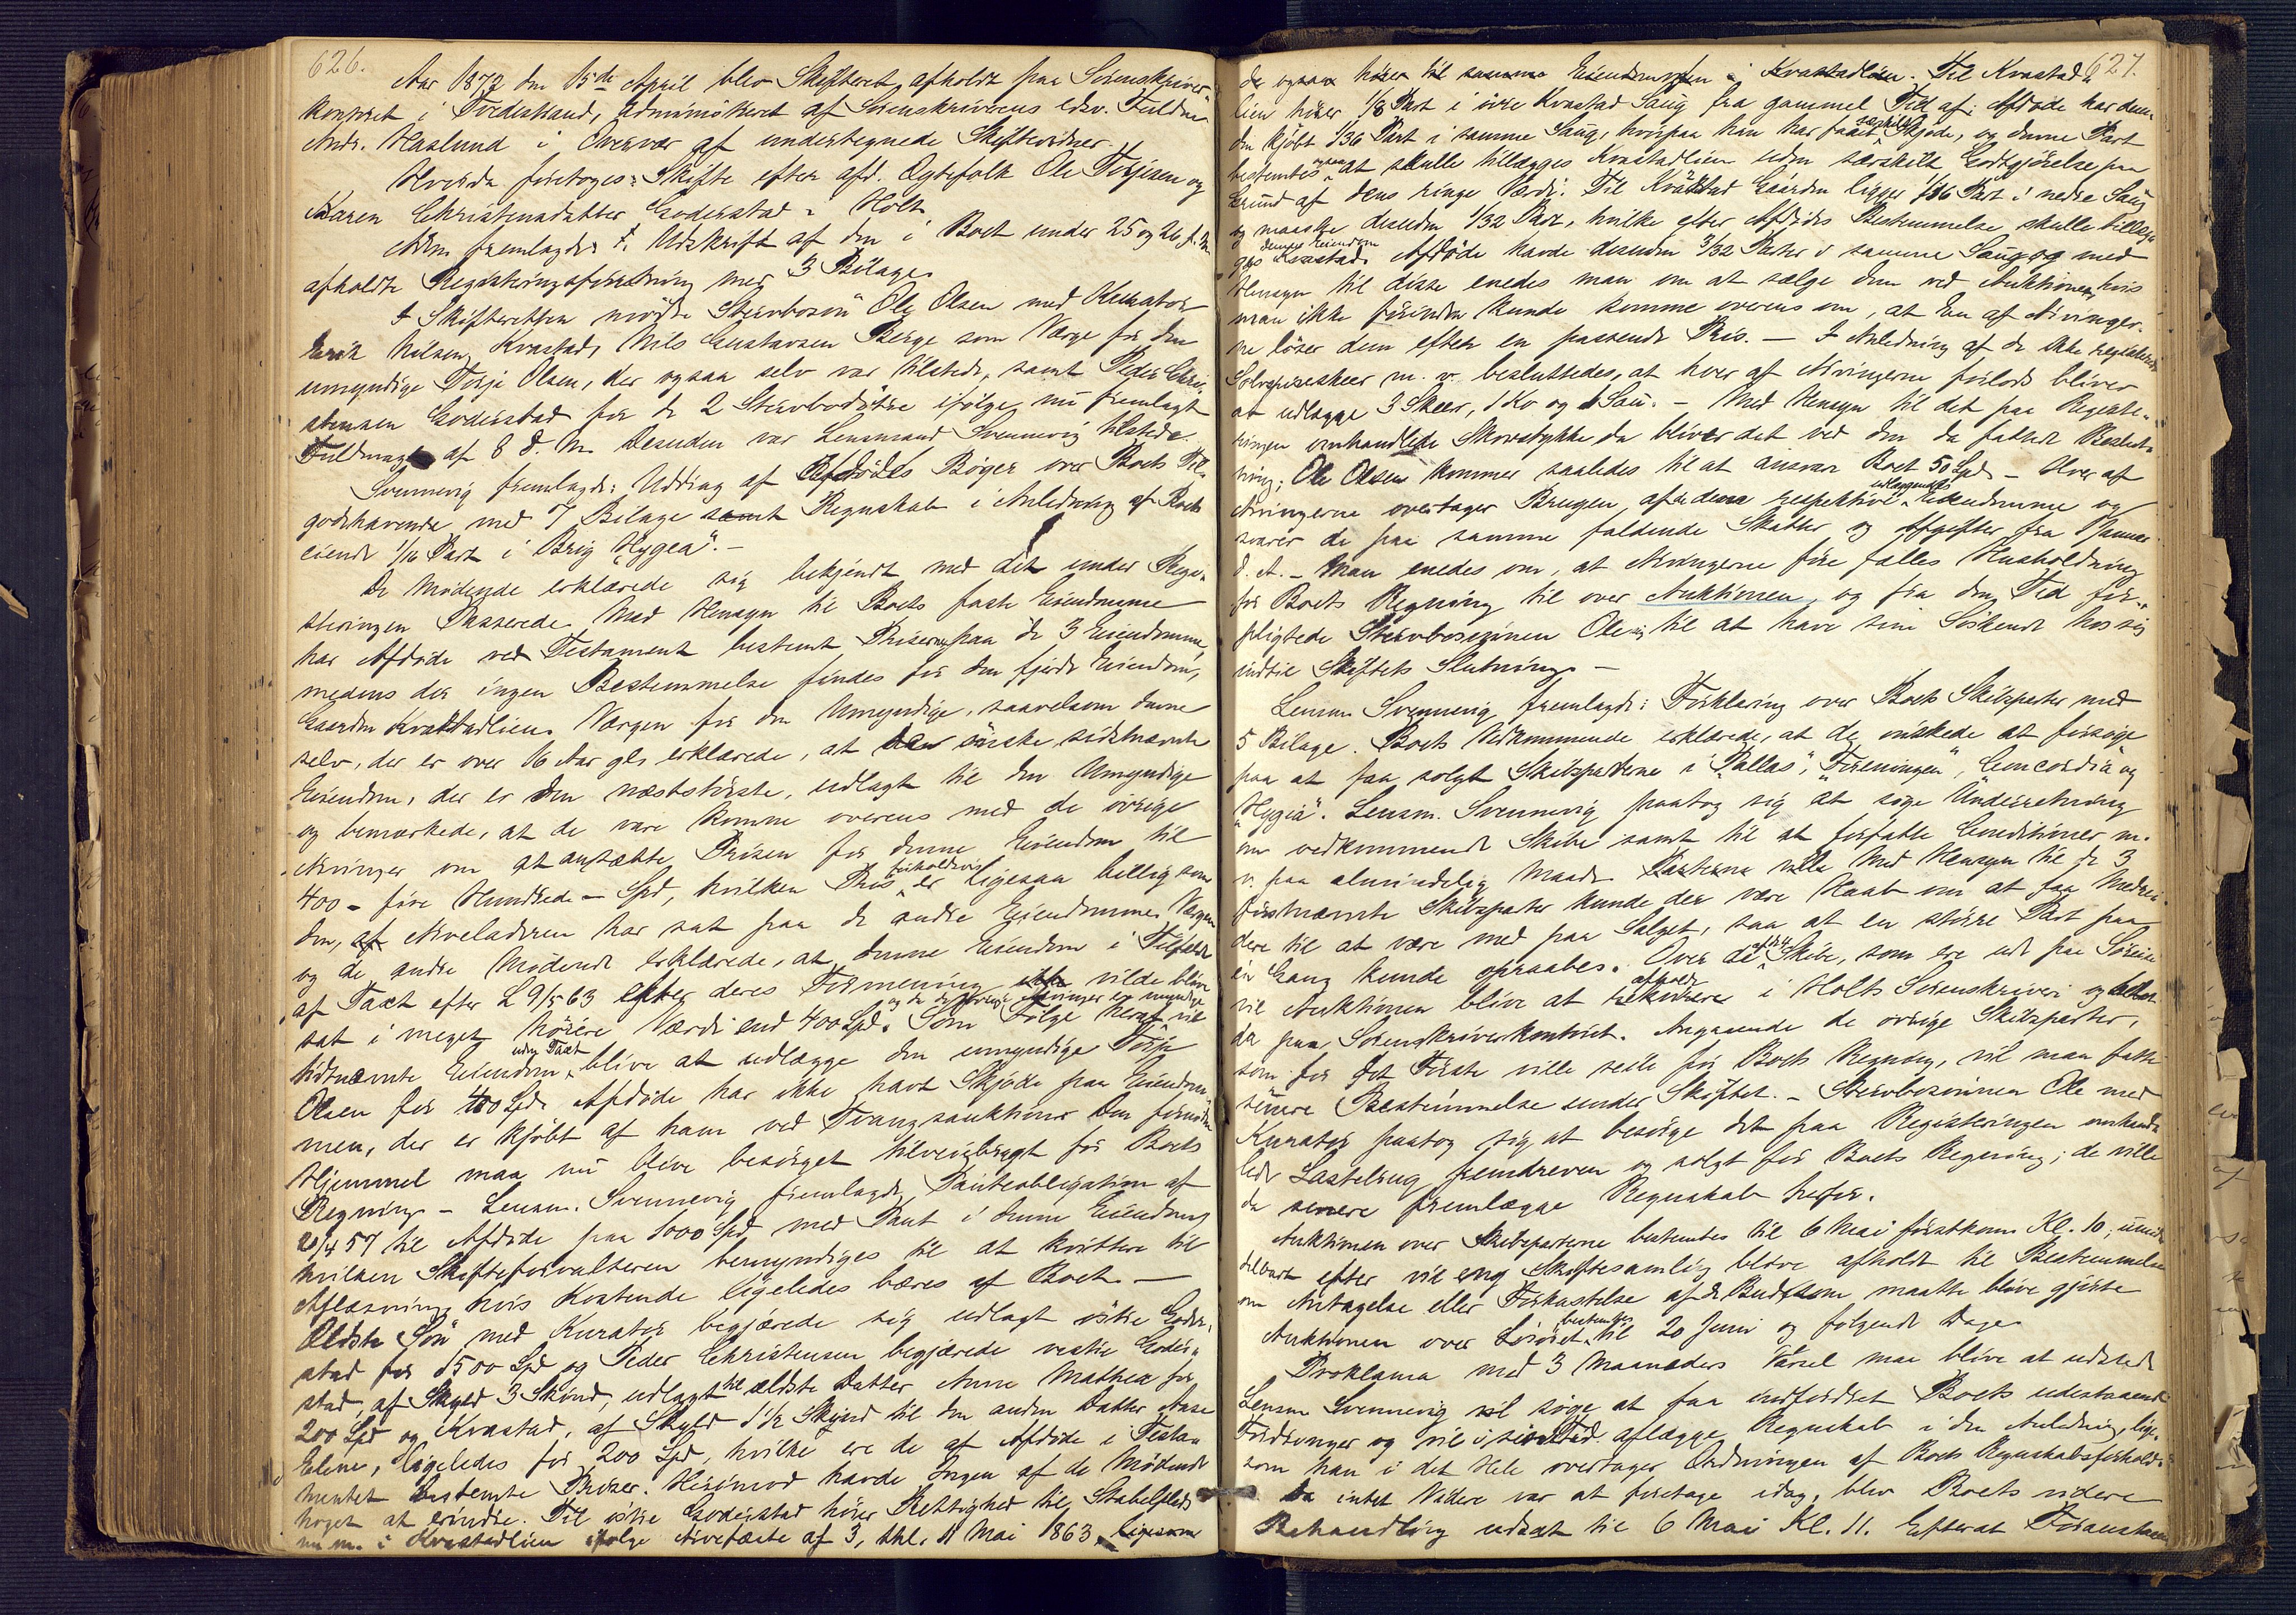 626.
Aar 1872 den 15de April blev Skifteret afholdt paa Sorenskriver-
kontoret i Tvedestrand, administreret af Sorenskriverens edsv. Fuldm.
Andr. Haslund i Overvær af undertegnede Skiftevidner.
Hvorda foretoges: Skifte efter afd. Ægtefolk Ole Terjesen og
Karen Christensdatter Goderstad i Holt.
Adm. fremlagde: 1. Udskrift af den i Boet under 25 og 26 f. M.
afholdte Registreringsforretning med 3 Bilage.
I Skifteretten mødte Stervbosøn Ole Olsen med Kurator
Erik Nilsen Kvastad, Nils Gustavsen Berge som Værge for den
umyndige Terje Olsen, der ogsaa selv var tilstede, samt Peder Chri-
stensen Goderstad for de 2 Stervbodøttre ifølge nu fremlagt
Fuldmagt af 8 d. M. Desuden var Lensmand Svennevig tilstede.
Svennevig fremlagde: Uddrag af Afdødes Bøger over Boets Til-
godehavende med 7 Bilage samt Regnskab i Anledning af Boets
eiende 1/16 Part i Brig "Hygea". –
De Mødende erklærede sig bekjendt med det under Regi-
streringen Passerede. Med Hensyn til Boets faste Eiendomme
har Afdøde ved Testament bestemt Priserne paa de 3 Eiendomme,
medens der ingen Bestemmelse findes for den fjerde Eiendom,
Gaarden Kvastadlien. Værgen for den Umyndige, saavelsom denne
selv, der er over 16 Aar gl., erklærede, at ønske sidstnævnte
Eiendom, der er den næststørste, udlagt til den Umyndige
og bemærkede, at de vare komne overens med de øvrige
Arvinger om at ansætte Prisen for denne Eiendom til
400 – fire Hundrede – Spd, hvilken Pris forholdsvis er ligesaa billig som
den, Arveladeren har sat paa de andre Eiendomme. Værgen
og de andre Mødende erklærede, at denne Eiendom i Tilfælde
af Taxt efter L 9/5 63 efter deres Formening vilde blive
sat i meget høiere Værdi end 400 Spd. Som Følge heraf og da de øvrige Arvinger er myndige vil
sidstnævnte Eiendom uden Taxt blive at udlægge den umyndige Terje
Olsen for 400 Spd. Afdøde har ikke havt Skjøde paa Eiendom-
men, der er kjøbt af ham ved Tvangsauktion. Den fornødne
Hjemmel maa nu blive besørget tilveiebragt for Boets
Regning. – Lensm. Svennevig fremlagde Panteobligation af
20/4 57 til Afdøde paa 1000 Spd med Pant i denne Eiendom
hvilken Skifteforvalteren bemyndiges til at kvittere til
Aflæsning, hvis Kostende ligeledes bæres af Boet. –
Ældste Søn med Kurator begjærede sig udlagt østre Goder-
stad for 1500 Spd og Peder Christensen begjærede vestre Goder-
stad, af Skyld 3 Skind, udlagt til ældste Datter Anne Mathea for
200 Spd og Kvastad, af Skyld 1 1/2 Skind til den anden Datter Aase
Eline, ligeledes for 200 Spd, hvilke ere de af Afdøde i Testa-
mentet bestemte Priser. Herimod havde Ingen af de Mødende
noget at erindre. Til østre Goderstad hører Rettighed til Stabelplads
m. m. i Kvastadlien ifølge Arvefæste af 3, thl. 11 Mai 1863, ligesom
627.
der ogsaa hører til Eiendommen i Kvastadlien. Til Kvastad-
lien hører 1/8 Part i øvre Kvastad Saug fra gammel Tid af; Afdøde har desu-
den kjøbt 1/36 Part i samme Saug, hvorpaa han har faaet særskilt Skjøde, og denne Part
bestemtes at skulle tillægges Kvastadlien uden særskilt Godtgjørelse paa
Grund af dens ringe Værdi. Til Kvastad Gaarden ligger 1/16 Part i nedre Saug
og maaske desuden 1/32 Part, hvilke efter Afdødes Bestemmelse skulle tillæg-
ges denne Eiendom. Afdøde havde desuden 3/32 Parter i samme Saug og med
Hensyn til disse enedes man om at sælge dem ved Auktionen, hvis
man ikke forinden kunde komme overens om, at En af Arvinger-
ne løser dem efter en passende Pris. – I Anledning af de ikke registrerede
Sølvspiseskeer m. v. besluttedes, at hver af Arvingerne forlods bliver
at udlægge 3 Skeer, 1 Ko og 1 Sau. – Med Hensyn til det paa Registre-
ringen omhandlede Skovstykke da bliver det ved den da fattede Beslut-
ning; Ole Olsen kommer saaledes til at ansvare Boet 50 Spd. – Hver af
Arvingerne overtager Brugen af de dem respektive udlæggendes Eiendomme og
svarer de paa samme faldende Skatter og Afgifter fra 1 Januar
d. A. – Man enedes om, at Arvingerne føre fælles Husholdning
for Boets Regning til over Auktionen, og fra den Tid for-
pligtede Stervbosønnen Ole sig til at have sine Søskende hos sig
indtil Skiftets Slutning. –
Lensm. Svennevig fremlagde: Forklaring over Boets Skibsparter med
5 Bilage. Boets Vedkommende erklærede, at de ønskede at forsøge
paa at faa solgt Skibsparterne i "Pallas", "Foreningen", "Concordia" og
"Hygia". Lensm. Svennevig paatog sig at søge Underretning
om vedkommende Skibe samt til at forfatte Conditioner m.
v. paa almindelig Maade. Med Hensyn til de 3
førstnævnte Skibsparter kunde der være Haab om at faa Medrei-
dere til at være med paa Salget, saa at en større Part paa
en Gang kunde opraabes. Over de 4 Skibe, som ere ude paa Søreise
vil Auktionen blive at afholde i Holts Sorenskriveri og
da paa Sorenskriverkontoret. Angaaende de øvrige Skibsparter,
som for det Første ville seile for Boets Regning, vil man fatte
senere Bestemmelse under Skiftet. – Stervbosønnen Ole med
Kurator paatog sig at besørge det paa Registreringen omhand-
lede Lastebrug fremdreven og solgt for Boets Regning; de ville
da senere fremlægge Regnskab herfor.
Auktionen over Skibsparterne bestemtes til 6 Mai førstkom. Kl. 10; umid-
delbart efter vil en Skiftesamling blive afholdt til Bestemmelse
om Antagelse eller Forkastelse af de Bud, som maatte blive gjorte.
Auktionen over Løsøret bestemtes til 20 Juni og følgende Dage.
Proklama med 3 Maaneders Varsel maa blive at udstede
Lensm Svennevig vil søge at faa indfordret Boets udestaaende
Fordringer og vil i sin Tid aflægge Regnskab i den Anledning, lige-
som han i det Hele overtager Ordningen af Boets Regnskabsforhold.
Da intet Videre var at foretage idag, blev Boets videre
Behandling udsat til 6 Mai Kl. 11. Efterat Foranstaaen